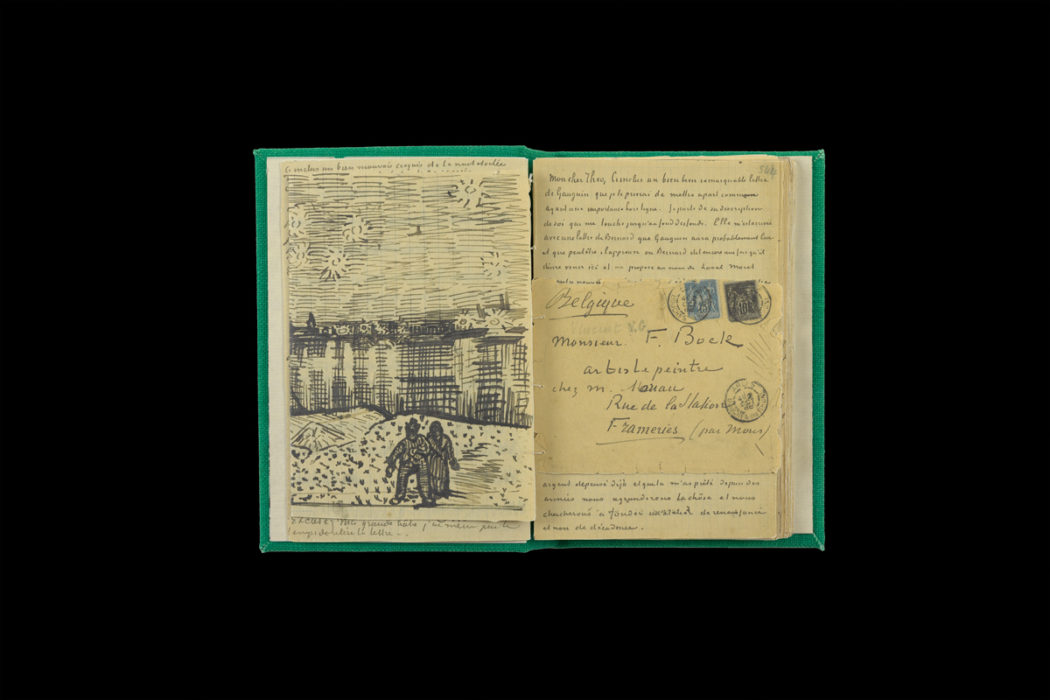 Ci inclus un bien mauvais croquis de la nuit étoilée
Excusez ma grande hâte, j'ai même pas le
temps de relire la lettre.
Mon cher Theo, ci inclus une bien bien remarquable lettre
de Gauguin que je te prierai de mettre à part comme
ayant une importance hors ligne. Je parle de sa description
de soi qui me touche jusqu'au fond des fonds. Elle m'
avec une lettre de Bernard que Gauguin aura probablement lue
et que peutêtre il approuve où Bernard dit encore une fois qu'il
désire venir ici et me propose au nom de Laval Moret
autre nouveau
Belgique
Vincent V.G.
Monsieur F. Bock
artiste peintre
chez M.
Rue de la Station
Frameries (par Mons)
argent dépensé déjà et que tu m'as prêté depuis des
années nous agrandirons la chôse et nous
chercherons à fonder un atelier de renaissance
et non de décadence.